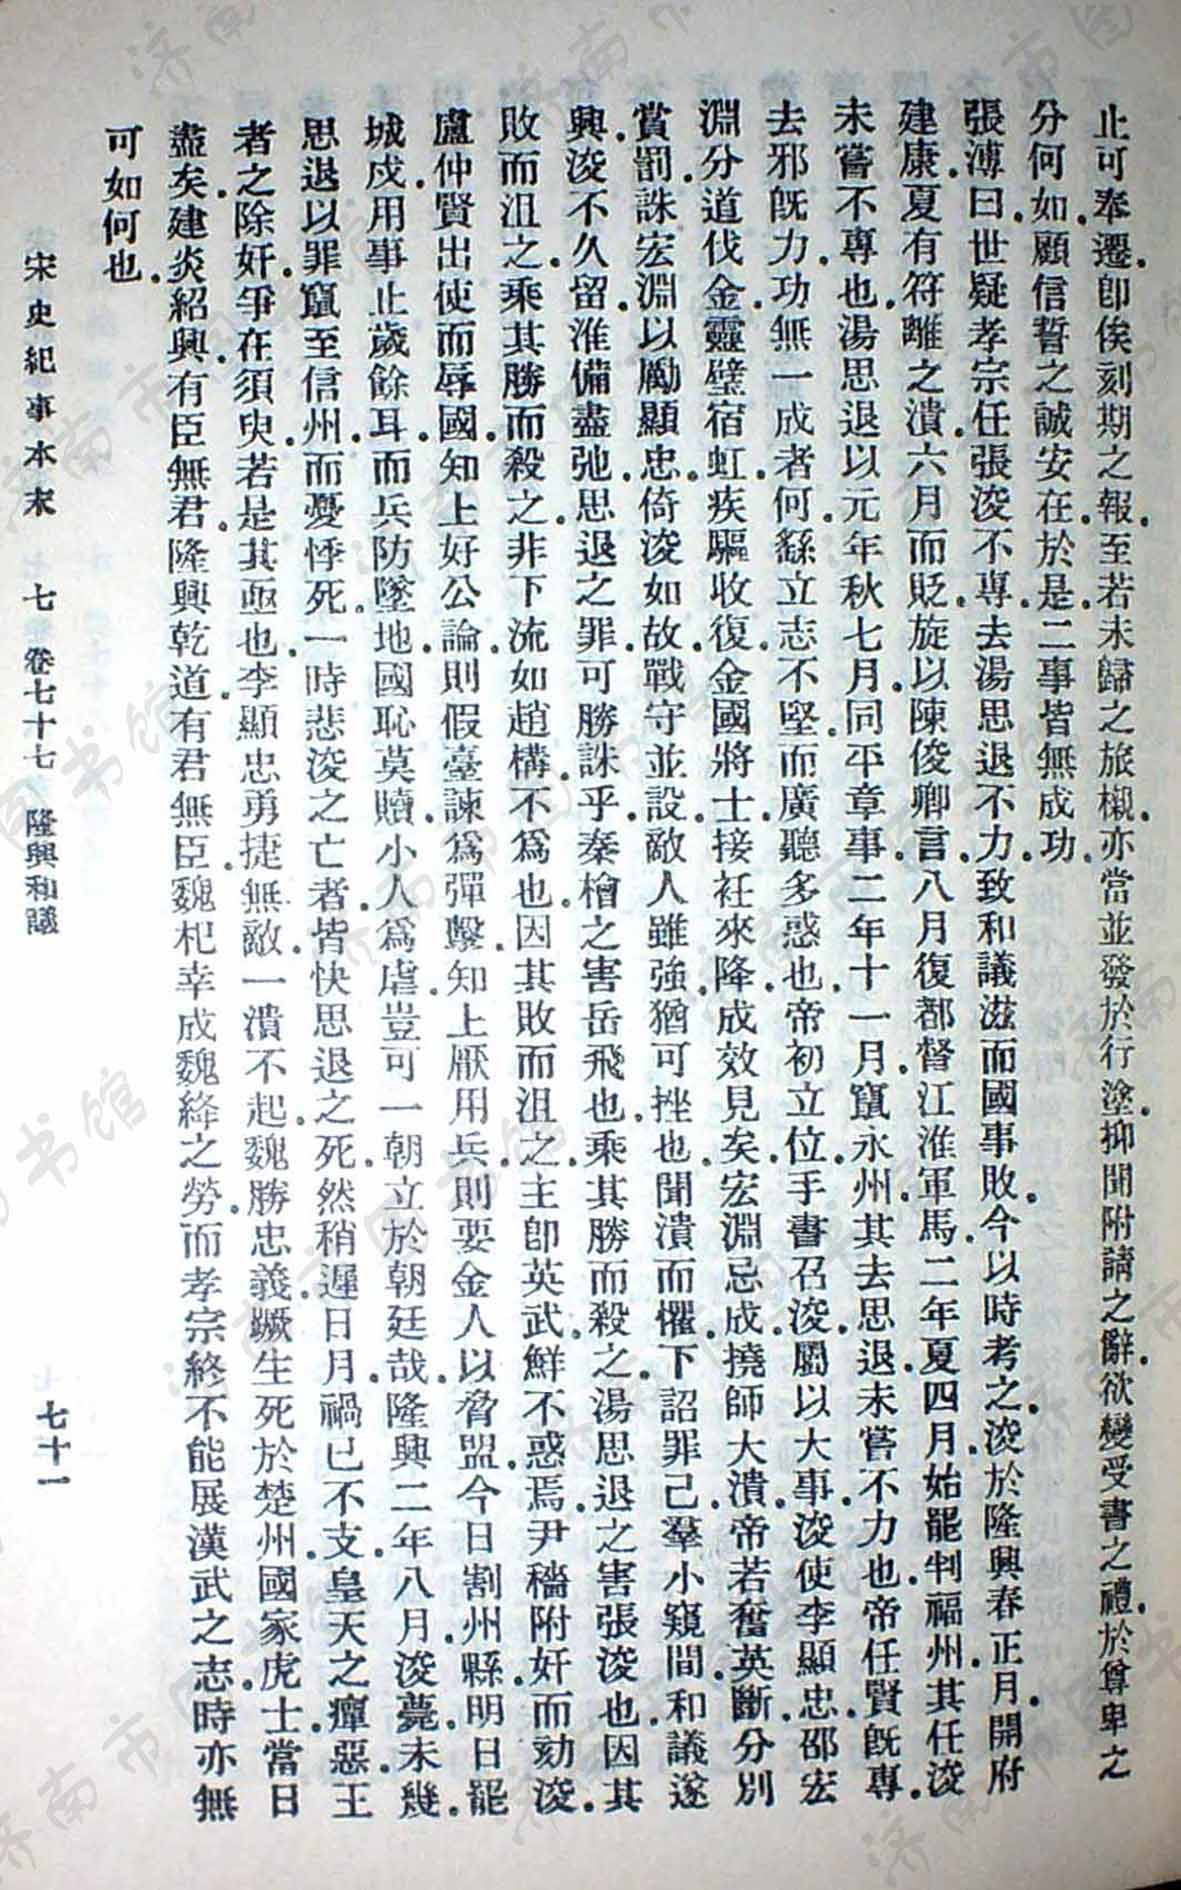 止可奉遷。卽俟刻期之報。至若未歸之旅櫬。亦當並發於行塗。抑聞附請之辭。欲變受書之禮。於尊卑之
分何如。顧信誓之誠安在。於是二事皆無成功。
張溥曰。世疑孝宗任張浚不專。去湯思退不力。致和議滋而國事敗。今以時考之。浚於隆興春正月。開府
建康。夏有符離之潰。六月而貶。旋以陳俊卿言。八月復都督江淮軍馬。二年夏四月。始罷判福州。其任浚
未嘗不專也。湯思退以元年秋七月。同平章事。二年十一月。竄永州。其去思退。未嘗不力也。帝任賢旣專。
去邪旣力。功無一成者何。繇立志不堅。而廣聽多惑也。帝初立位。手書召浚。屬以大事。浚使李顯忠。邵宏
淵分道伐金。靈璧宿虹。疾驅收復。金國將士。接衽來降。成效見矣。宏淵忌成。撓師大潰。帝若奮英斷。分別
賞罰。誅宏淵以勵顯忠。倚浚如故。戰守並設。敵人雖強。猶可挫也。聞潰而懼。下詔罪己。羣小窺間。和議遂
興。浚不久留。淮備盡弛。思退之罪。可勝誅乎。秦檜之害岳飛也。乘其勝而殺之。湯思退之害張浚也。因其
敗而沮之。乘其勝而殺之。非下流如趙構。不爲也。因其敗而沮之。主卽英武。鮮不惑焉。尹穡附奸而劾浚。
盧仲賢出使而辱國。知上好公論。則假臺諫爲彈擊。知上厭用兵。則要金人以脅盟。今日割州縣。明日罷
城戍。用事止歲餘耳。而兵防墜地。國恥莫贖。小人爲虐。豈可一朝立於朝廷哉。隆興二年八月。浚薨。未幾。
思退以罪竄至信州。而憂悸死。一時悲浚之亡者。皆快思退之死。然稍遲日月。禍已不支。皇天之癉惡。王
者之除奸。爭在須臾。若是其亟也。李顯忠勇捷無敵。一潰不起。魏勝忠義。蹶生死於楚州。國家虎士。當日
盡矣。建炎紹興。有臣無君。隆興乾道。有君無臣。魏杞幸成魏絳之勞。而孝宗終不能展漢武之志。時亦無
可如何也。
宋史紀事本末 七 卷七十七 隆興和議 七十一